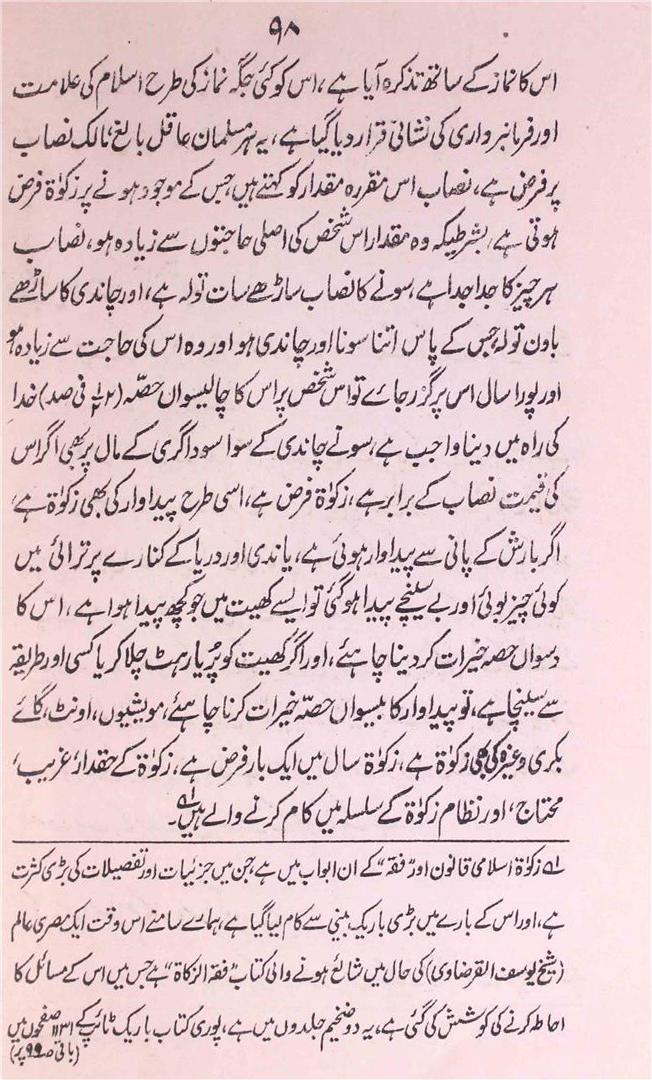 ۹۸
اس کا نماز کے ساتھ تذکرہ آیا ہے، اس کو کئی جگہ نماز کی طرح اسلام کی علامت
اور فرمانبرداری کی نشانی قرار دیا گیا ہے، یہ ہر مسلمان عاقل بالغ، مالک نصاب
پر فرض ہے، نصاب اس مقررہ مقدار کو کہتے ہیں، جس کے موجود ہونے پر زکوٰۃ فرض
ہوتی ہے، بشرطیکہ وہ مقدار اس شخص کی اصلی حاجتوں سے زیادہ ہو، نصاب
ہر چیز کا جدا جدا ہے، سونے کا نصاب ساڑھے سات تولہ ہے، اور چاندی کا ساڑھے
باون تولہ، جس کے پاس اتنا سونا اور چاندی ہو اور وہ اس کی حاجت سے زیادہ ہو
اور پورا سال اس پر گزر جائے تو اس شخص پر اس کا چالیسواں حصّہ (۲½ فی صد) خدا
کی راہ میں دینا واجب ہے، سونے چاندی کے سوا سوداگری کے مال پر بھی اگر اس
کی قیمت نصاب کے برابر ہے، زکوٰۃ فرض ہے، اسی طرح پیداوار کی بھی زکوٰۃ ہے،
اگر بارش کے پانی سے پیداوار ہوئی ہے، یا ندی اور دریا کے کنارے پر ترائی میں
کوئی چیز بوئی اور بے سینچے پیدا ہو گئی تو ایسے کھیت میں جو کچھ پیدا ہوا ہے، اس کا
دسواں حصہ خیرات کر دینا چاہئے، اور اگر کھیت کو پُر یا رہٹ چلا کر یا کسی اور طریقہ
سے سینچا ہے، تو پیداوار کا بیسواں حصّہ خیرات کرنا چاہئے، مویشیوں، اونٹ، گائے
بکری وغیرہ کی بھی زکوٰۃ ہے، زکوٰۃ سال میں ایک بار فرض ہے، زکوٰۃ کے حقدار، غریب،
محتاج، اور نظام زکوٰۃ کے سلسلہ میں کام کرنے والے ہیں۔ؔ۱
؎۱ زکوٰۃ اسلامی قانون اور "فقہ" کے ان ابواب میں ہے، جن میں جزئیات اور تفصیلات کی بڑی کثرت
ہے، اور اس کے بارے میں بڑی باریک بینی سے کام لیا گیا ہے، ہمارے سامنے اس وقت ایک مصری عالم
(شیخ یوسف القرضاوی) کی حال میں شائع ہونے والی کتاب "فقہ الزکاۃ" ہے جس میں اس کے مسائل کا
احاطہ کرنے کی کوشش کی گئی ہے، یہ دو ضخیم جلدوں میں ہے، پوری کتاب باریک ٹائپ کے ۱۱۳۱ صفحوں میں
(باقی ص۹۹ پر)